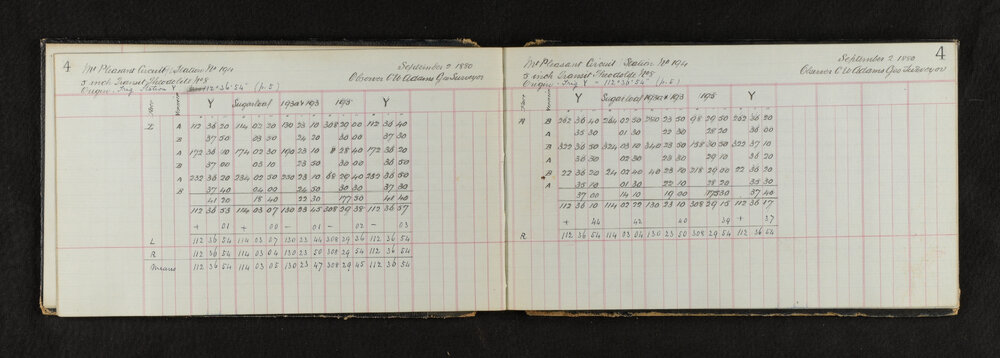 4
Mt Pleasant Circuit Station No 194
September 2 1880
5 inch Transit Theodolite No 8
Observer C W Adams Geo Surveyor
Origin Trig Station Y 112° 36' 54" (p. 5)
Y Sugarloaf 193a & 193 195 Y
L A 112 36 20 114 02 20 130 23 10 308 29 00 112 36 40
B 37 50 03 30 24 20 30 00 37 30
A 172 36 10 174 02 30 190 23 10 8 28 40 172 36 20
B 37 00 03 10 23 50 30 00 36 50
A 232 36 20 234 02 50 250 23 10 68 29 40 232 36 50
B 37 40 04 00 24 50 30 30 37 30
41 20 18 40 22 30 177 50 40 40
112 36 53 114 03 07 130 23 45 308 29 38 112 36 57
+ 01 + 00 - 01 - 02 - 03
L 112 36 54 114 03 07 130 23 44 308 29 36 112 36 54
R 112 36 54 114 03 04 130 23 50 308 29 54 112 36 54
Means 112 36 54 114 03 05 130 23 47 308 29 45 112 36 54
4
Mt Pleasant Circuit Station No 194
September 2 1880
5 inch Transit Theodolite No 8
Observer C W Adams Geo Surveyor
Origin Trig Y = 112° 36' 54" (p. 5)
Y Sugarloaf 193a & 193 195 Y
R B 262 36 40 264 02 50 280 23 50 98 29 50 262 36 20
A 35 30 01 30 22 30 28 20 36 00
B 322 36 50 324 03 10 340 23 50 158 30 50 322 37 10
A 36 30 02 30 23 30 29 10 36 20
B 22 36 20 24 02 40 40 23 10 218 29 00 22 36 20
A 35 10 01 30 22 10 28 20 35 30
37 00 14 10 19 00 175 30 37 40
112 36 10 114 02 22 130 23 10 308 29 15 112 36 17
+ 44 42 40 39 + 37
R 112 36 54 114 03 04 130 23 50 308 29 54 112 36 54